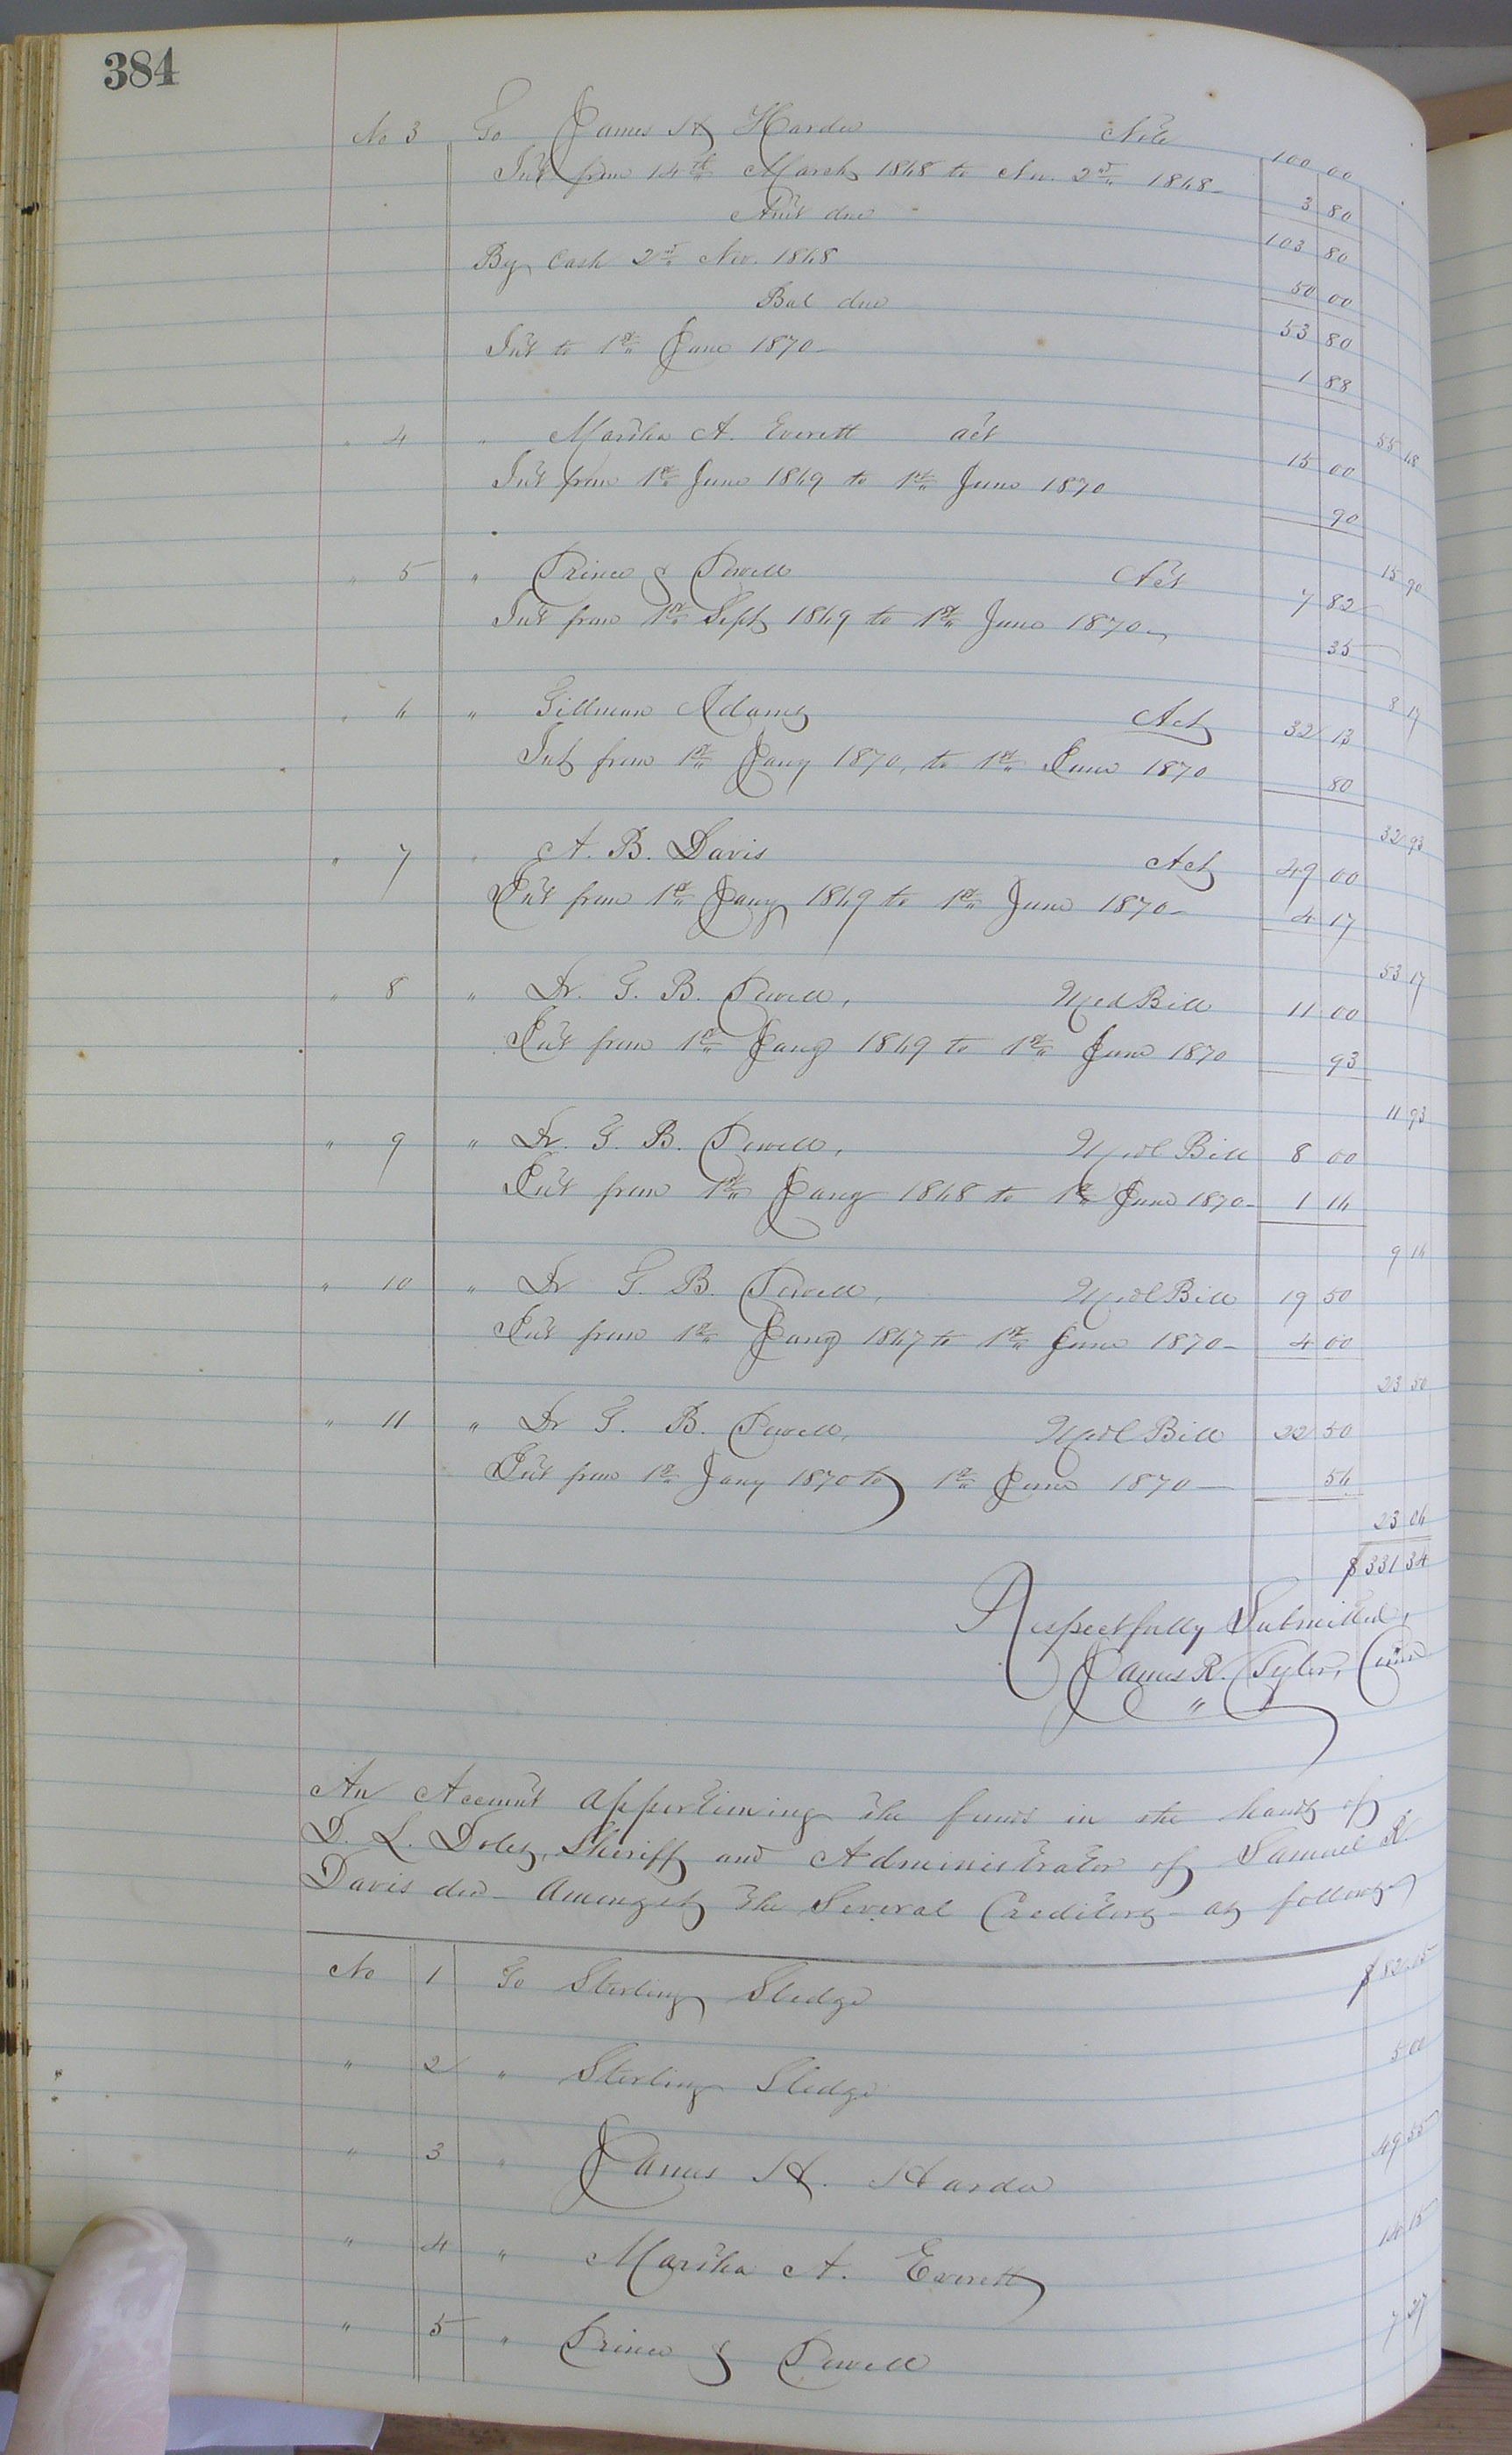 384
No 3 To James H Harder Note 100 00
Int from 14th March 1868 to Nov. 2nd 1868 3 80
Am't due 103 80
By Cash 2nd Nov. 1868 50 00
Bal due 53 80
Int to 1st June 1870 1 88
55 68
" 4 " Martha A. Everett act 15 00
Int from 1st June 1869 to 1st June 1870 90
15 90
" 5 " Prince & Powell Act 7 82
Int from 1st Sept 1869 to 1st June 1870 35
8 17
" 6 " Gillman Adams Act 32 13
Int from 1st Jany 1870, to 1st June 1870 80
32 93
" 7 " A. B. Davis Act 49 00
Int from 1st Jany 1869 to 1st June 1870 4 17
53 17
" 8 " Dr. G. B. Powell, Med Bill 11 00
Int from 1st Jany 1869 to 1st June 1870 93
11 93
" 9 " Dr. G. B. Powell, Med Bill 8 00
Int from 1st Jany 1868 to 1st June 1870 1 16
9 16
" 10 " Dr G. B. Powell, Medl Bill 19 50
Int from 1st Jany 1867 to 1st June 1870 4 00
23 50
" 11 " Dr G. B. Powell, Medl Bill 22 50
Int from 1st Jany 1870 to 1st June 1870 56
23 06
$331 34
Respectfully Submitted,
James R. Tyler, Comr
An Account apportioning the funds in the hands of
D. L. Doles, Sheriff and Administrator of Samuel R.
Davis decd amongst the Several Creditors as follows
No 1 To Sterling Sledge $82.05
" 2 " Sterling Sledge 5 00
" 3 " James H. Harder 49 55
" 4 " Martha A. Everett 14 15
" 5 " Prince & Powell 7 27